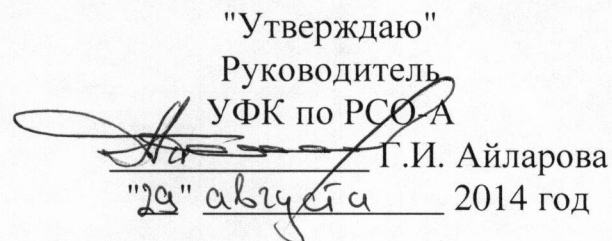 "Утверждаю"
Руководитель
УФК по РСО-А
Г.И. Айларова
"29" августа 2014 год